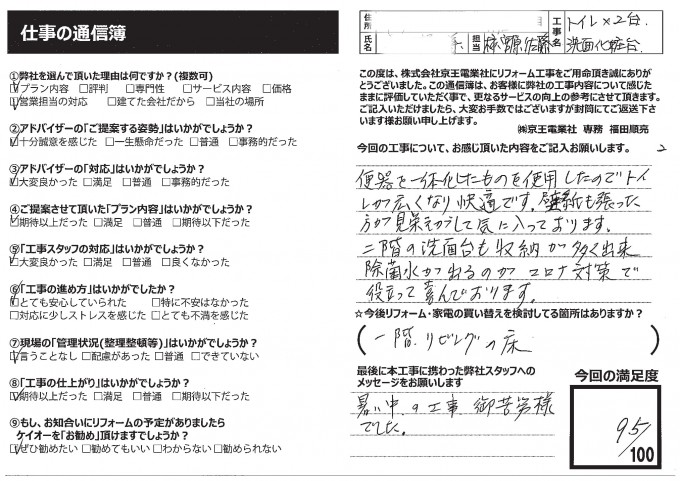 仕事の通信簿
①弊社を選んで頂いた理由は何ですか?(複数可)
☑プラン内容 □評判 □専門性 □サービス内容 □価格
☑営業担当の対応 □建てた会社だから □当社の場所
②アドバイザーの「ご提案する姿勢」はいかがでしょうか?
☑十分誠意を感じた □一生懸命だった □普通 □事務的だった
③アドバイザーの「対応」はいかがでしょうか?
☑大変良かった □満足 □普通 □事務的だった
④ご提案させて頂いた「プラン内容」はいかがでしょうか?
☑期待以上だった □満足 □普通 □期待以下だった
⑤「工事スタッフの対応」はいかがでしょうか?
☑大変良かった □満足 □普通 □良くなかった
⑥「工事の進め方」はいかがでしたか?
☑とても安心していられた □特に不安はなかった
□対応に少しストレスを感じた □とても不満を感じた
⑦現場の「管理状況(整理整頓等)」はいかがでしょうか?
☑言うことなし □配慮があった □普通 □できていない
⑧「工事の仕上がり」はいかがでしょうか?
☑期待以上だった □満足 □普通 □期待以下だった
⑨もし、お知合いにリフォームの予定がありましたら
ケイオーを「お勧め」頂けますでしょうか?
☑ぜひ勧めたい □勧めてもいい □わからない □勧められない
住所
氏名
担当
佐藤
工事名
トイレ×2台.
洗面化粧台.
この度は、株式会社京王電業社にリフォーム工事をご用命頂き誠にありが
とうございました。この通信簿は、お客様に弊社の工事内容について感じた
ままに評価していただく事で、更なるサービスの向上の参考にさせて頂きます。
ご記入いただけましたら、大変お手数ではございますが封筒にてご返送下さ
います様お願い申し上げます。
㈱京王電業社 専務 福田順亮
今回の工事について、お感じ頂いた内容をご記入お願いします。
便器を一体化したものを使用したのでトイ
レが広くなり快適です。壁紙も張った
方が見栄えがして気に入っております。
二階の洗面台も収納が多く出来
除菌水が出るのがコロナ対策で
役立って喜んでおります。
☆今後リフォーム・家電の買い替えを検討してる箇所はありますか?
(一階.リビングの床)
最後に本工事に携わった弊社スタッフへの
メッセージをお願いします
暑い中の工事御苦労様
でした。
今回の満足度
95/100